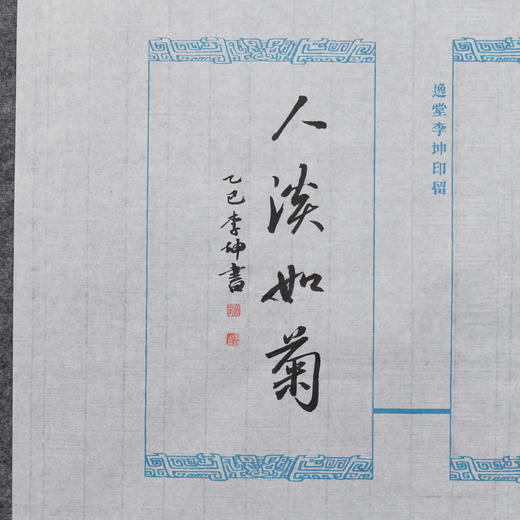 逸堂李坤印留
人淡如菊
乙巳李坤書